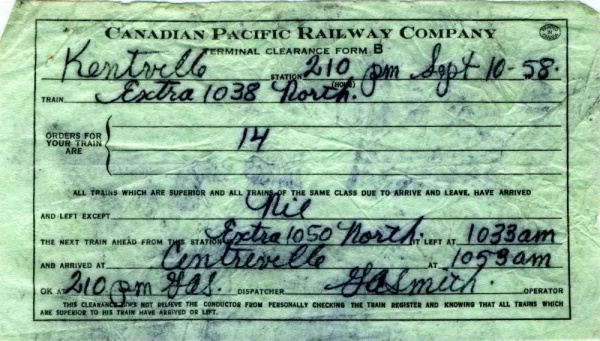 CANADIAN PACIFIC RAILWAY COMPANY
TERMINAL CLEARANCE FORM B
Kentville STATION 210 pm Sept 10-58.
(HOUR)
TRAIN Extra 1038 North.
ORDERS FOR YOUR TRAIN ARE 14
ALL TRAINS WHICH ARE SUPERIOR AND ALL TRAINS OF THE SAME CLASS DUE TO ARRIVE AND LEAVE, HAVE ARRIVED
AND LEFT EXCEPT Nil
THE NEXT TRAIN AHEAD FROM THIS STATION Extra 1050 North. IT LEFT AT 1033 am
AND ARRIVED AT Centreville AT 1053 am
OK AT 210 pm GAS. DISPATCHER GASmith. OPERATOR
THIS CLEARANCE DOES NOT RELIEVE THE CONDUCTOR FROM PERSONALLY CHECKING THE TRAIN REGISTER AND KNOWING THAT ALL TRAINS WHICH
ARE SUPERIOR TO HIS TRAIN HAVE ARRIVED OR LEFT.